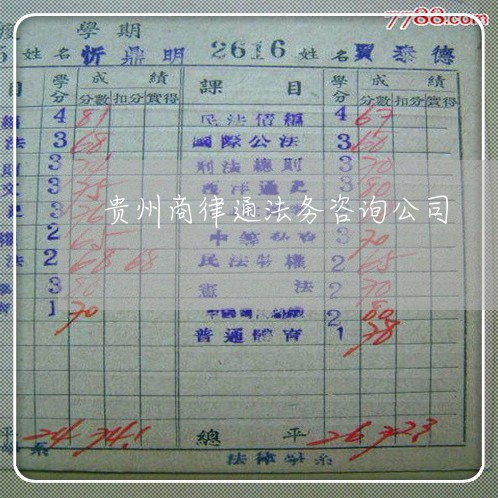 7788.com
學期
姓名 忻鼎明 2616 姓名 賈泰德
目 學分 成績 課目 學分 成績
分數 扣分 實得 分數 扣分 實得
4 81 民法債編 4 67
法 3 68 國際公法 3 60
則 3 刑法總則 3 70
3 75 西洋通史 3 80
貴州商律通法务咨询公司
2 65 3 70
法 2 68 68 民法物權 2 65
3 80 憲法 2 70
1 70 2 80
普通體育 1 78
平 24 74.1 總平 26 72.3
系 法律學系